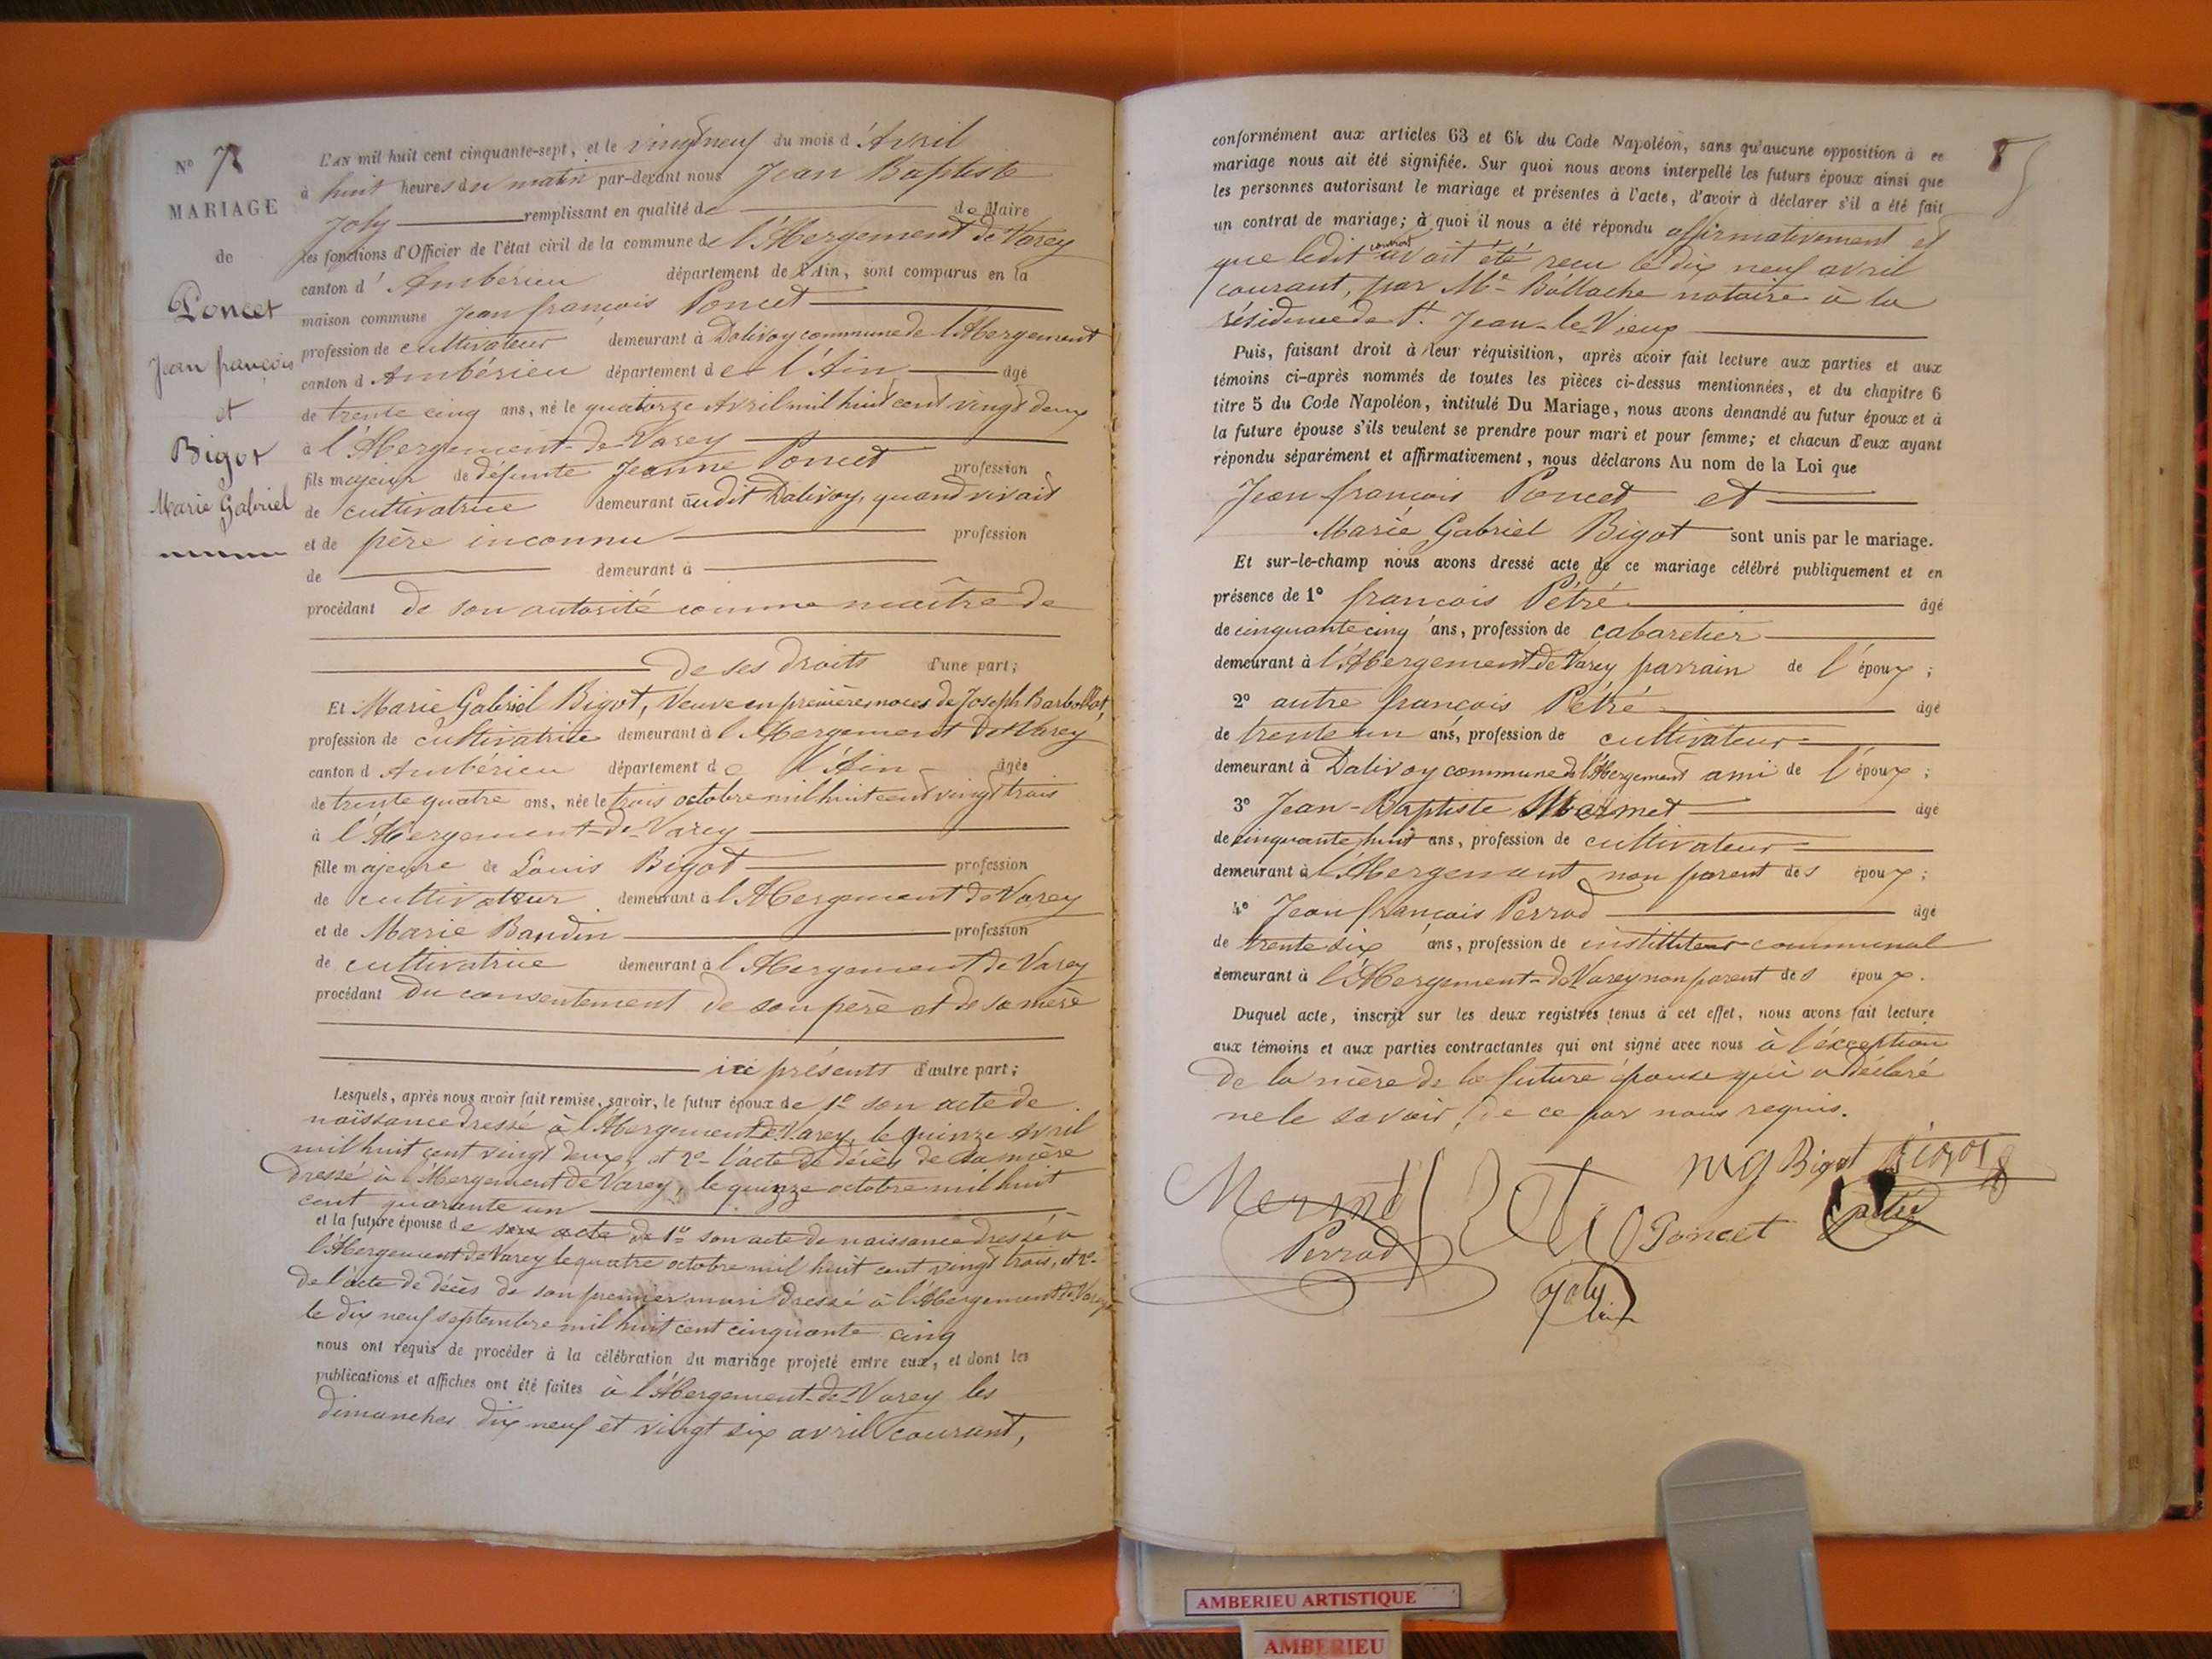 N° 7
MARIAGE
de
Poncet
Jean françois
et
Bigot
Marie Gabriel
L'AN mil huit cent cinquante-sept, et le vingt neuf du mois d'Avril
à huit heures du matin par-devant nous Jean Baptiste
Joly remplissant en qualité de de Maire
les fonctions d'Officier de l'état civil de la commune de l'Abergement de Varey
canton d'Ambérieu département de l'Ain, sont comparus en la
maison commune Jean françois Poncet
profession de cultivateur demeurant à Dalivoy commune de l'Abergement
canton d Ambérieu département de l'Ain âgé
de trente cinq ans, né le quatorze Avril mil huit cent vingt deux
à l'Abergement-de-Varey
fils majeur de défunte Jeanne Poncet profession
de cultivatrice demeurant audit Dalivoy, quand vivait
et de père inconnu profession
de demeurant à
procédant de son autorité comme maître de
de ses droits d'une part;
Et Marie Gabriel Bigot, Veuve en premières noces de Joseph Barbollat,
profession de cultivatrice demeurant à l'Abergement de Varey
canton d Ambérieu département de l'Ain âgée
de trente quatre ans, née le trois octobre mil huit cent vingt trois
à l'Abergement-de-Varey
fille majeure de Louis Bigot profession
de cultivateur demeurant à l'Abergement de Varey
et de Marie Baudin profession
de cultivatrice demeurant à l'Abergement de Varey
procédant du consentement de son père et de sa mère
ici présents d'autre part;
Lesquels, après nous avoir fait remise, savoir, le futur époux de 1° son acte de
naissance dressé à l'Abergement de Varey, le quinze Avril
mil huit cent vingt deux, et 2° l'acte de décès de sa mère
dressé à l'Abergement de Varey, le quinze octobre mil huit
cent quarante un
et la future épouse de son acte de 1° son acte de naissance dressé à
l'Abergement de Varey le quatre octobre mil huit cent vingt trois, et 2°
de l'acte de décès de son premier mari dressé à l'Abergement de Varey
le dix neuf septembre mil huit cent cinquante cinq
nous ont requis de procéder à la célébration du mariage projeté entre eux, et dont les
publications et affiches ont été faites à l'Abergement-de-Varey les
dimanches dix neuf et vingt six avril courant,
conformément aux articles 63 et 64 du Code Napoléon, sans qu'aucune opposition à ce
mariage nous ait été signifiée. Sur quoi nous avons interpellé les futurs époux ainsi que
les personnes autorisant le mariage et présentes à l'acte, d'avoir à déclarer s'il a été fait
un contrat de mariage; à quoi il nous a été répondu affirmativement et
que ledit contrat avait été reçu le dix neuf avril
courant, par Me Bollache notaire à la
résidence de St. Jean-le-Vieux
Puis, faisant droit à leur réquisition, après avoir fait lecture aux parties et aux
témoins ci-après nommés de toutes les pièces ci-dessus mentionnées, et du chapitre 6
titre 5 du Code Napoléon, intitulé Du Mariage, nous avons demandé au futur époux et à
la future épouse s'ils veulent se prendre pour mari et pour femme; et chacun d'eux ayant
répondu séparément et affirmativement, nous déclarons Au nom de la Loi que
Jean françois Poncet et
Marie Gabriel Bigot sont unis par le mariage.
Et sur-le-champ nous avons dressé acte de ce mariage célébré publiquement et en
présence de 1° françois Pétré âgé
de cinquante cinq ans, profession de cabaretier
demeurant à l'Abergement de Varey parrain de l'époux;
2° autre françois Pétré âgé
de trente un ans, profession de cultivateur
demeurant à Dalivoy commune de l'Abergement ami de l'époux;
3° Jean-Baptiste Mermet âgé
de cinquante huit ans, profession de cultivateur
demeurant à l'Abergement non parent des époux;
4° Jean françois Perrod âgé
de trente six ans, profession de instituteur communal
demeurant à l'Abergement-de-Varey non parent des époux.
Duquel acte, inscrit sur les deux registres tenus à cet effet, nous avons fait lecture
aux témoins et aux parties contractantes qui ont signé avec nous à l'exception
de la mère de la future épouse qui a déclaré
ne le savoir, de ce par nous requis.
mg Bigot Bigot
Mermet
Perrod
Poncet
Joly
AMBERIEU ARTISTIQUE
AMBERIEU